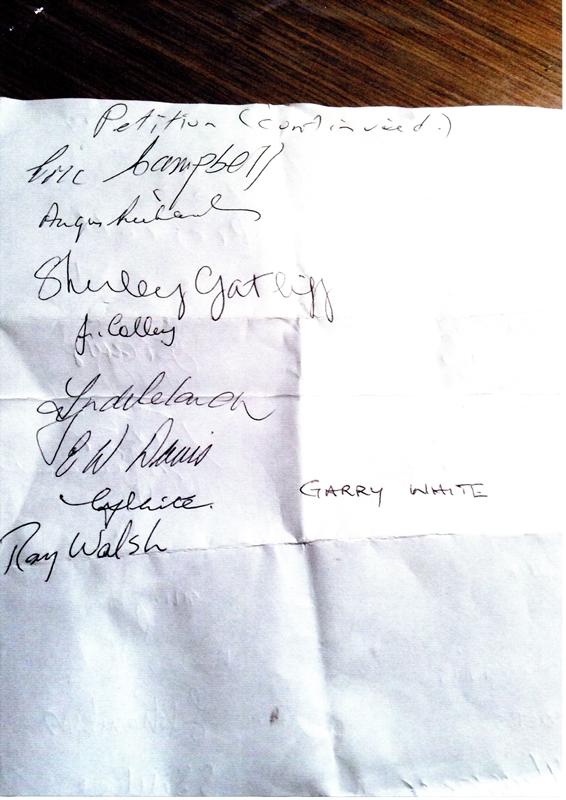 Petition (continued.)
Eric Campbell
Angus
Shirley Gatliff
J. Colley
E W Davis
G White. GARRY WHITE
Ray Walsh